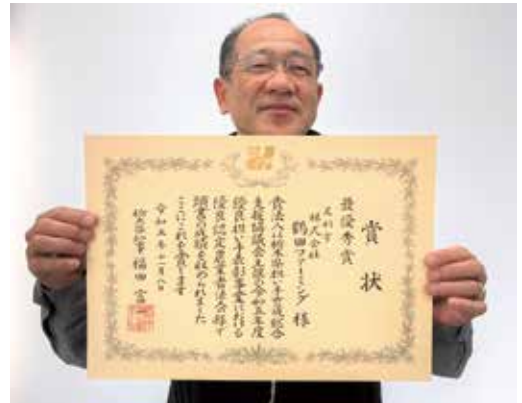 賞状
最優秀賞
足利市
株式会社
鶴田ファーミング 様
貴法人は栃木県担い手育成総合
支援協議会主催の令和五年度
優良担い手表彰事業における
優良認定農業者法人の部で
頭書の成績を収められました
ここにこれを賞します
令和五年十一月八日
栃木県知事 福田富一